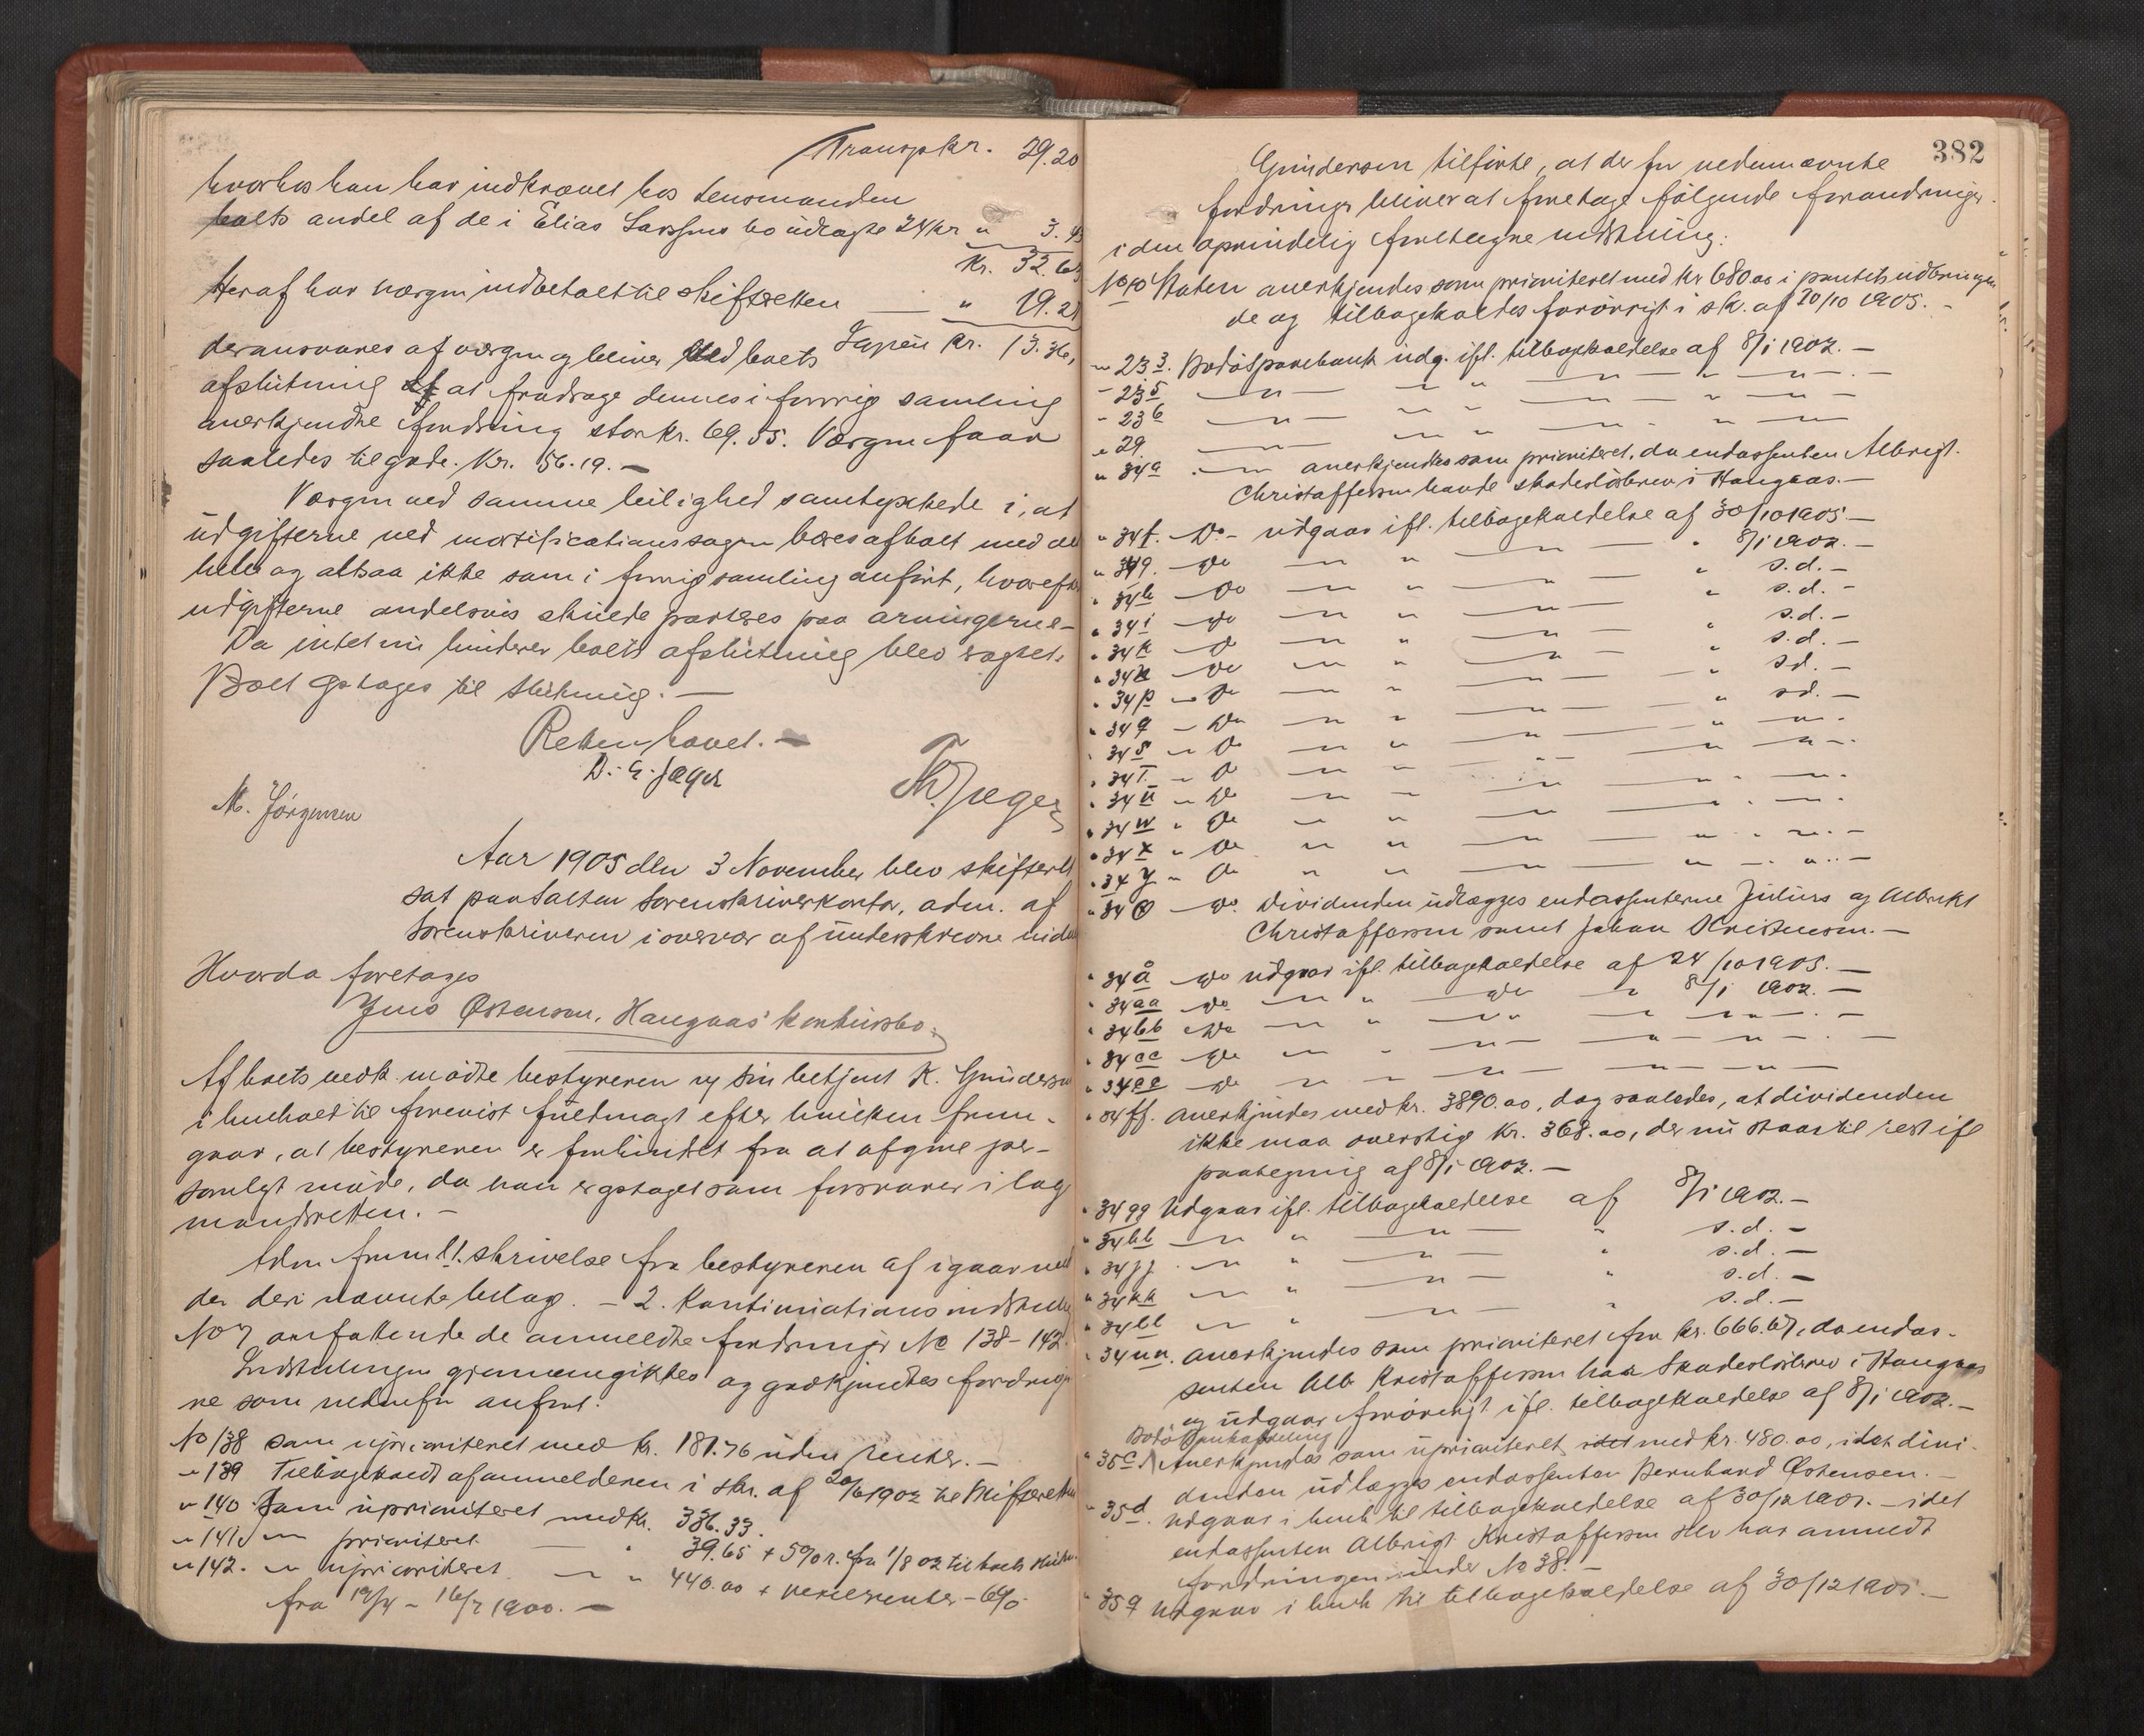 Transp kr. 29.20
hvorhos han har indkrævet hos lensmanden
boets andel af de i Elias Larssens bo udlagte 24 kr " 3.43
Kr. 32.63
Heraf har værgen indbetalt til skifteretten — " 19.27
Igjen Kr. 13.36,
der ansvares af værgen og bliver ved boets
afslutning at fradrage dennes i forrig samling
anerkjendte fordring stor kr. 69.55. Værgen faar
saaledes tilgode. Kr. 56.19. —
Værgen ved samme leilighed samtykkede i, at
udgifterne ved mortificationssagen bæres af boet med det
hele og altsaa ikke som i forrig samling anført, hvorefter
udgifterne andelsvis skulde parteres paa arvingerne —
Da intet nu hindrer boets afslutning blev vagtet
Boet optages til slutning. —
Retten hævet. —
D. G. Jæger
Th. Jæger
M. Jörgensen
Aar 1905 den 3 November blev skifteret
sat paa Salten sorenskriverkontor, adm. af
sorenskriveren i overvær af underskrevne vidner
Hvorda foretages
Jens Østensen, Haugaas' konkursbo.
Af boets vedk. mødte bestyreren ved sin betjent K. Gundersen
i henhold til forevist fuldmagt efter hvilken frem-
gaar, at bestyreren er forhindret fra at afgive per-
sonligt møde, da han er optaget som forsvarer i lag
mandsretten. —
Adm fremll. 1. skrivelse fra bestyreren af igaar med
der deri nævnte bilag. — 2. Kontinuationsindstilling
No 7 omfattende de anmeldte fordringer No 138–142.
Indstillingen gjennemgikkes og godkjendtes fordringer
ne som nedenfor anført:
No 138 som uprioriteret med kr. 181.76 uden renter. —
" 139 Tilbagekaldt af anmelderen i skr. af 20/6 1902 til skifteretten
" 140 Som uprioriteret med kr. 336.33.
" 141 " prioriteret — " 39.65 + 5% r. fra 1/8 02 til boets slutn.
" 142. " uprioriteret — " " 440.00 + vexelrenter – 6%
fra 19/4 – 16/7 1900. —
382
Gundersen tilførte, at der for nedennævnte
fordringer bliver at foretage følgende forandringer
i den oprindelig foretagne indstilling:
No 10 Staten anerkjendes som prioriteret med kr 680.00 i pantets udbringen
de og tilbagekaldes forøvrigt i skr. af 20/10 1905. —
" 233. Bodø Sparebank udg. ifl. tilbagekaldelse af 8/1 1902. —
" 235 — " — — " " — " — " — " — . —
" 236 — " — — " " — " — " — " —
" 29. — " — — " " — " — . " — " —
" 34a — " — anerkjendes som prioriteret, da endossenten Albrigt
Christoffersen havde skadesløsbrev i Haugaas. —
" 34f. — Do — udgaar ifl. tilbagekaldelse af 30/10 1905. —
" 34g. — Do — " " — " — " 8/1 1902. —
" 34h — Do — " " — " — " s.d. —
" 34i — Do — " " — " — " s.d. —
" 34k — Do — " " — " — " s.d. —
" 34n — Do — " " — " — " s.d. —
" 34p — Do — " " — " — " s.d. —
" 34q — Do — " " — " — " s.d. —
" 34s — Do — " " — " — " — " —
" 34t — Do — " " — " — " — " —
" 34u — Do — " " — " — " — " —
" 34w " Do — " " — " — " — " —
" 34x " Do — " " — " — " — " —
" 34y " Do — " " — " — " — " —
" 34ø — Do. Dividenden udlægges endossenterne Julius og Albrikt
Christoffersen samt Johan Kristensen. —
" 34å — Do udgaar ifl. tilbagekaldelse af 24/10 1905. —
" 34aa — Do — " " — Do — " 8/1 1902. —
" 34bb — Do — " " — " " — " — " —
" 34cc — Do — " " — " — " — " —
" 34ee — Do — " " — " — " — " —
" 34ff. Anerkjendes med kr. 3890.00, dog saaledes, at dividenden
ikke maa overstige Kr. 368.00, der nu staar til rest ifl
paategning af 8/1 1902. —
" 34gg Udgaar ifl. tilbagekaldelse af 8/1 1902. —
" 34hh — " " — " — " s.d. —
" 34jj — " " — " — " s.d. —
" 34kk — " " — " — " s.d. —
" 34ll — " " — " — " s.d. —
" 34nn. Anerkjendes som prioriteret for kr. 666.67, da endos-
senten Alb. Kristoffersen har Skadesløsbrev i Haugaas
og udgaar forøvrigt ifl. tilbagekaldelse af 8/1 1902. —
Bodø Bankafdeling
" 35c Anerkjendes som uprioriteret idet med kr. 480.00, idet divi-
denden udlægges endossenten Bernhard Østensen. —
" 35d. Udgaar i henh til tilbagekaldelse af 30/12 1901. — idet
endossenten Albrigt Kristoffersen selv har anmeldt
fordringen under No 38. —
" 35g Udgaar i henh til tilbagekaldelse af 30/12 1901. —